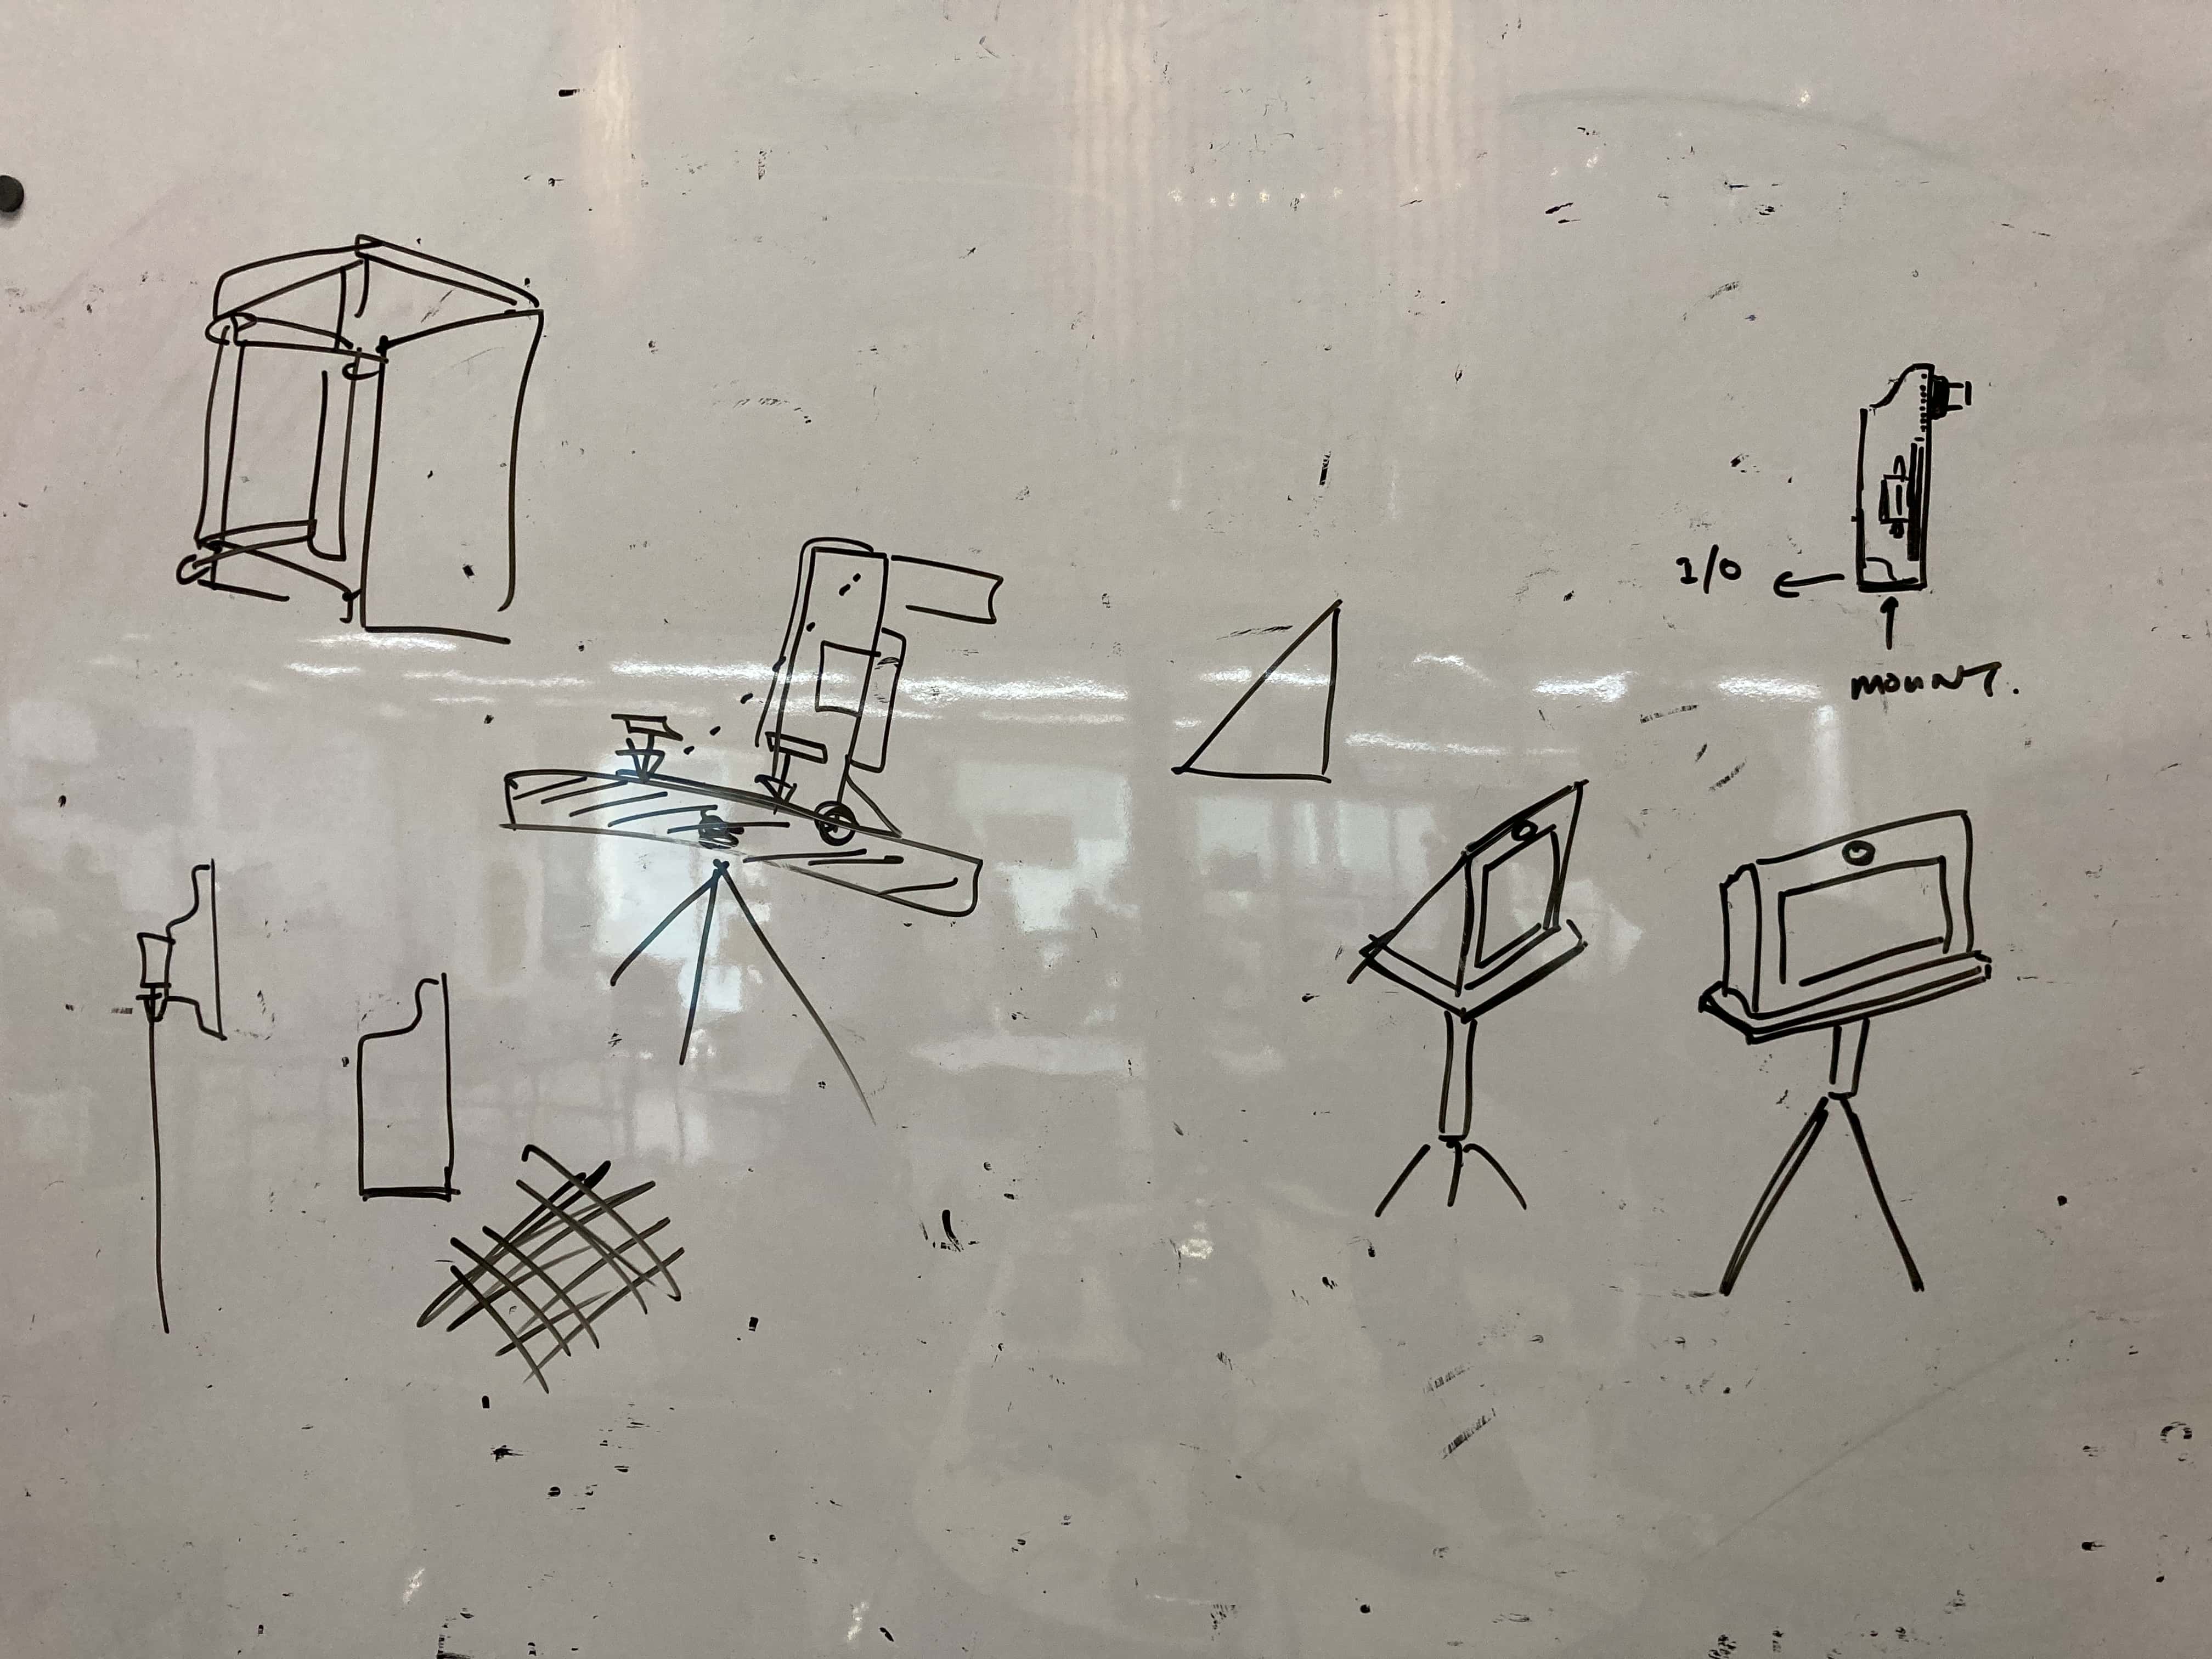 I/O
MOUNT.